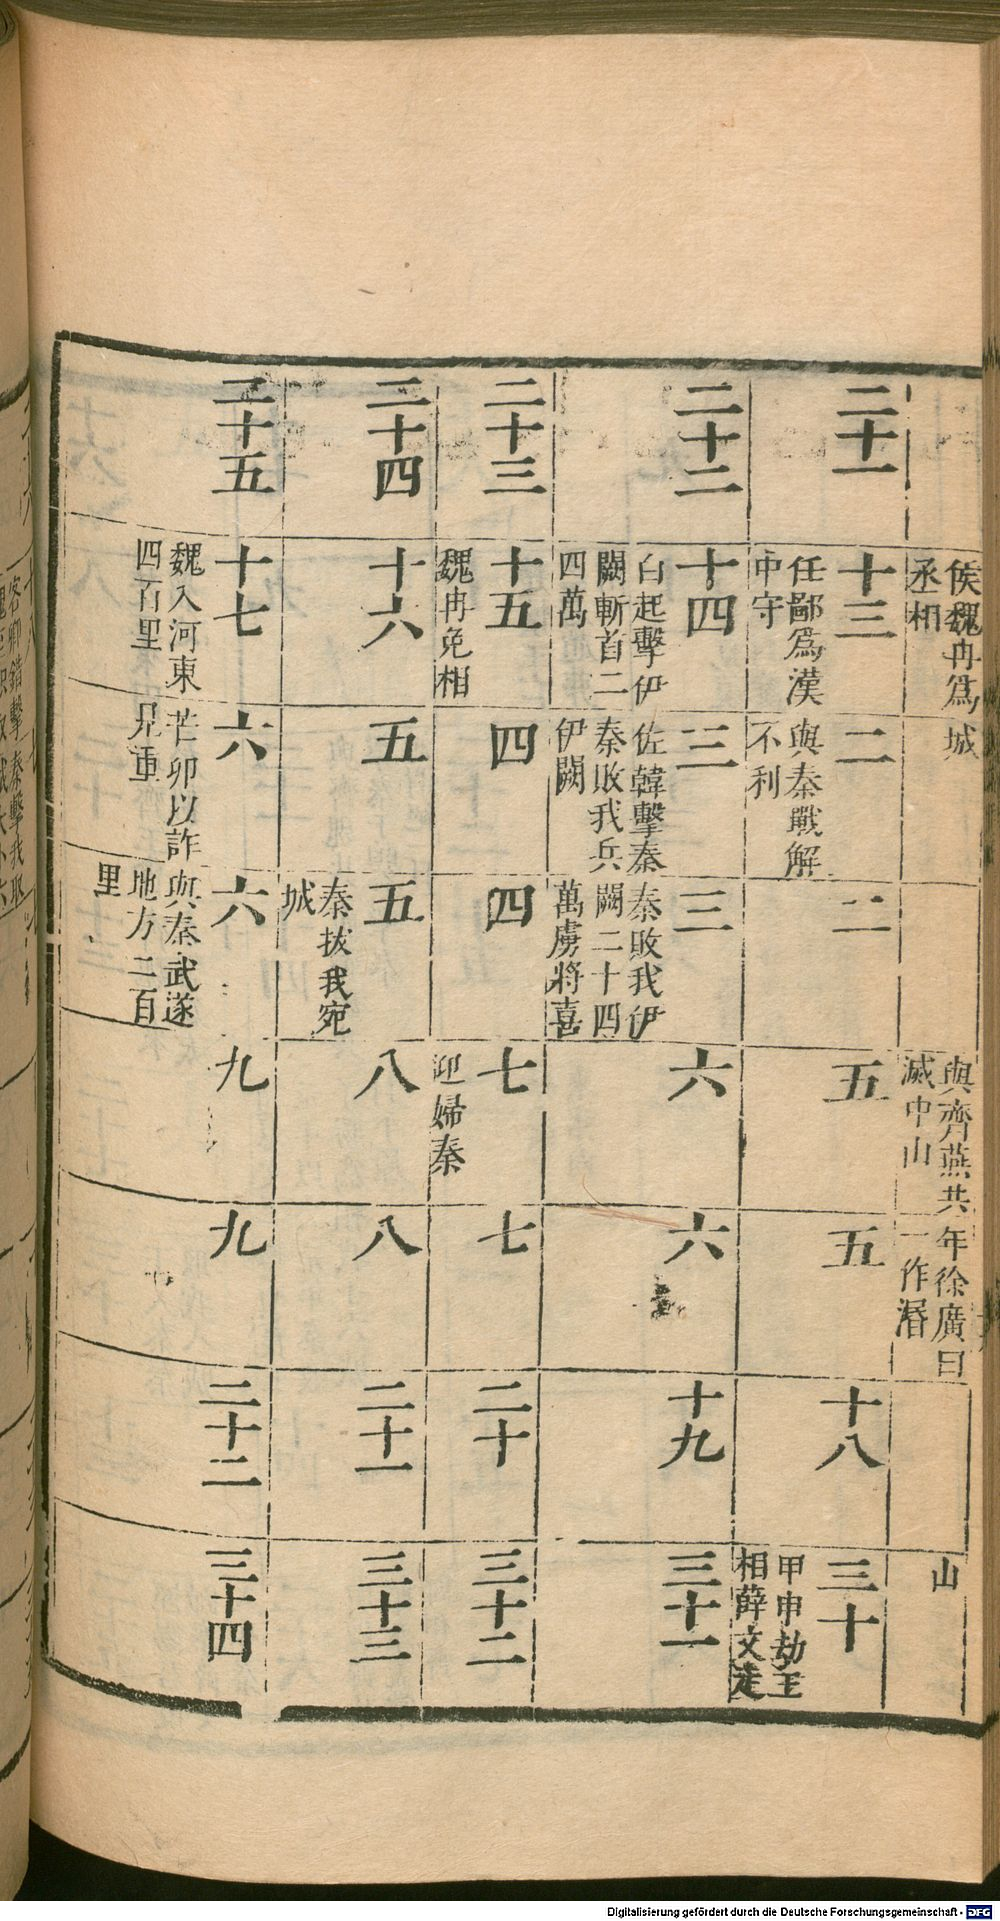 侯魏冉爲
丞相
城
與齊燕共
滅中山
年徐廣曰
一作湣
山
二十一
十三
任鄙爲漢
中守
二
與秦戰解
不利
二
五
五
十八
三十
甲申劫王
相薛文走
二十二
十四
白起擊伊
闕斬首二
四萬
三
佐韓擊秦
秦敗我兵
伊闕
三
秦敗我伊
闕二十四
萬虜將喜
六
六
十九
三十一
二十三
十五
魏冉免相
四
四
七
迎婦秦
七
二十
三十二
二十四
十六
五
五
秦拔我宛
城
八
八
二十一
三十三
二十五
十七
魏入河東
四百里
六
芒卯以詐
見重
六
與秦武遂
地方二百
里
九
九
二十二
三十四
Digitalisierung gefördert durch die Deutsche Forschungsgemeinschaft - DFG